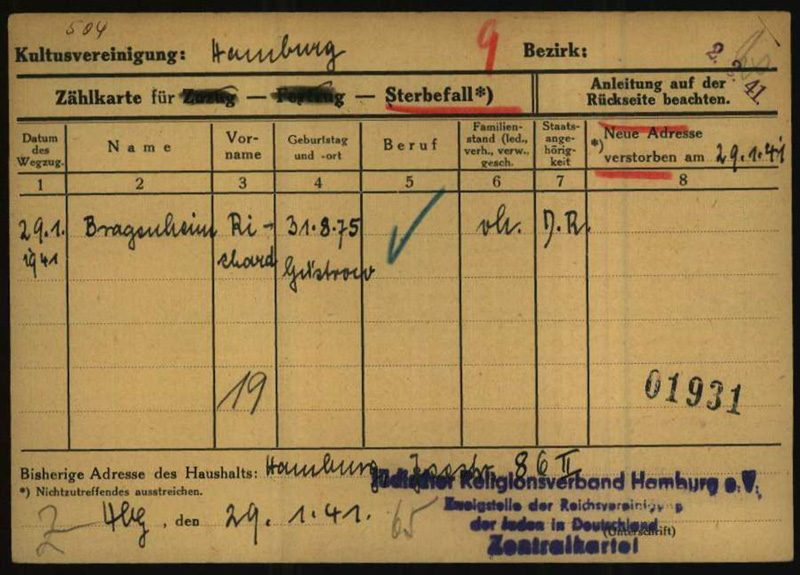 504
Kultusvereinigung: Hamburg 9 Bezirk:
2. 3. 41.
Zählkarte für Zuzug — Fortzug — Sterbefall*)
Anleitung auf der
Rückseite beachten.
Datum des Wegzug.
Name
Vor-name
Geburtstag und -ort
Beruf
Familien-stand (led., verh., verw., gesch.
Staats-ange-hörig-keit
*) Neue Adresse
verstorben am 29.1.41
1 2 3 4 5 6 7 8
29.1. Bragenheim Ri- 31.8.75 vh. D.R.
1941 chard Güstrow
19
01931
Bisherige Adresse des Haushalts: Hamburg 86 II
*) Nichtzutreffendes ausstreichen.
Hbg, den 29.1.41. 65
Jüdischer Religionsverband Hamburg e.V.
Zweigstelle der Reichsvereinigung
der Juden in Deutschland
(Unterschrift)
Zentralkartei